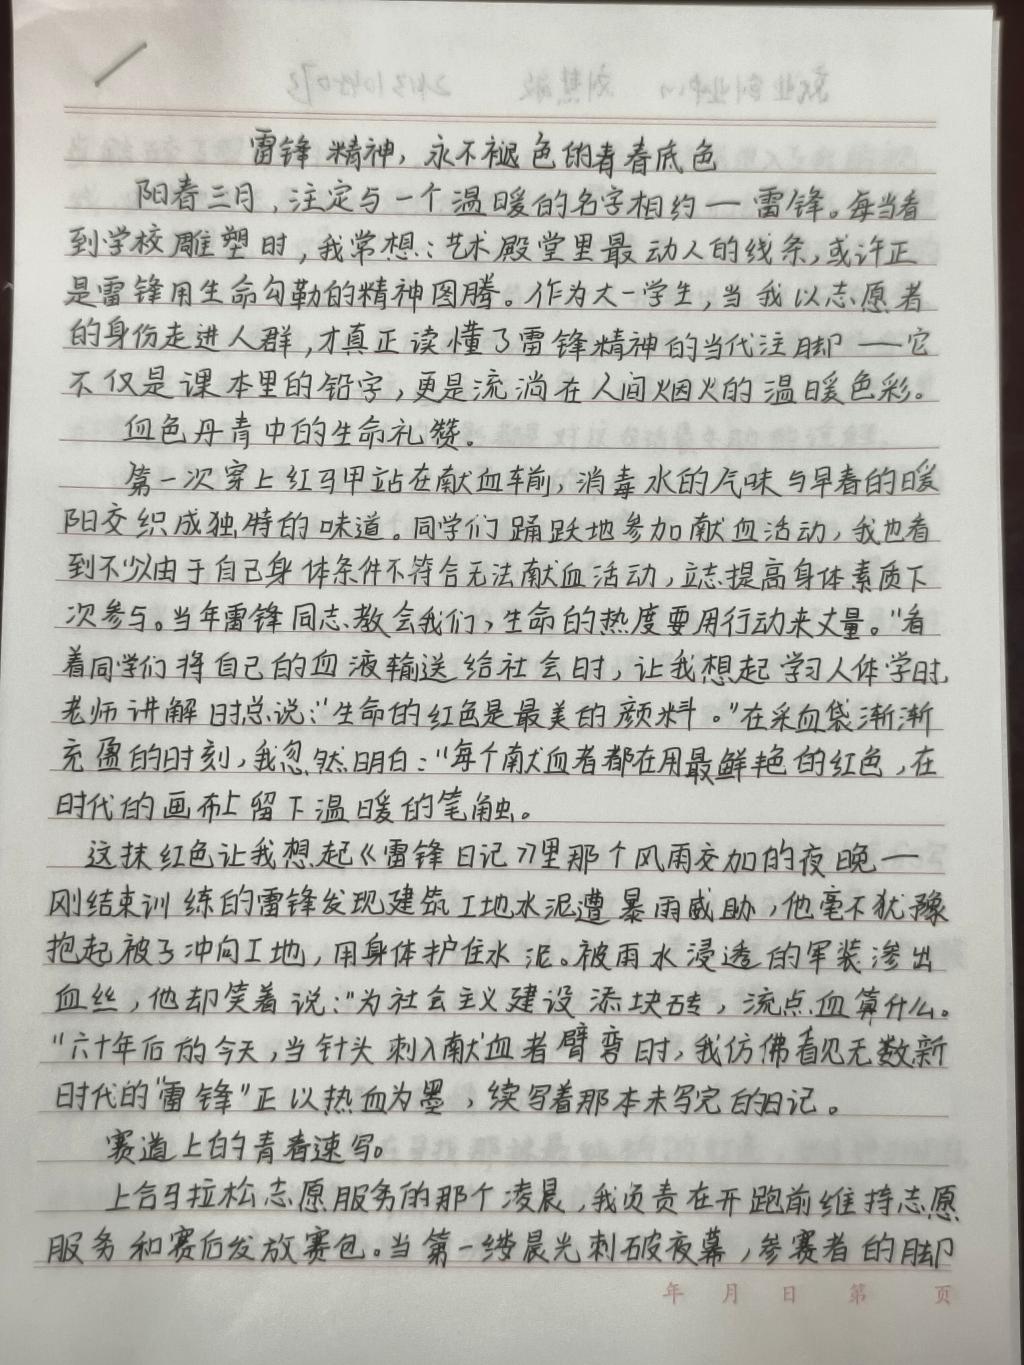 雷锋精神，永不褪色的青春底色
阳春三月，注定与一个温暖的名字相约一雷锋。每当看
到学校雕塑时，我常想：艺术殿堂里最动人的线条，或许正
是雷锋用生命勾勒的精神图腾。作为大一学生，当我以志愿者
的身份走进人群，才真正读懂了雷锋精神的当代注脚——它
不仅是课本里的铅字，更是流淌在人间烟火的温暖色彩。
血色丹青中的生命礼赞。
第一次穿上红马甲站在献血车前，消毒水的气味与早春的暖
阳交织成独特的味道。同学们踊跃地参加献血活动，我也看
到不少由于自己身体条件不符合无法献血活动，立志提高身体素质下
次参与。当年雷锋同志教会我们，生命的热度要用行动来丈量。"看
着同学们将自己的血液输送给社会时，让我想起学习人体学时，
老师讲解时总说："生命的红色是最美的颜料。"在采血袋渐渐
充盈的时刻，我忽然明白："每个献血者都在用最鲜艳的红色，在
时代的画布上留下温暖的笔触。
这抹红色让我想起《雷锋日记》里那个风雨交加的夜晚一
刚结束训练的雷锋发现建筑工地水泥遭暴雨威胁，他毫不犹豫
抱起被子冲向工地，用身体护住水泥。被雨水浸透的军装渗出
血丝，他却笑着说："为社会主义建设添块砖，流点血算什么。
"六十年后的今天，当针头刺入献血者臂弯时，我仿佛看见无数新
时代的"雷锋"正以热血为墨，续写着那本未写完的日记。
赛道上的青春速写。
上合马拉松志愿服务的那个凌晨，我负责在开跑前维持志愿
服务和赛后发放赛包。当第一缕晨光刺破夜幕，参赛者的脚
年 月 日 第 页